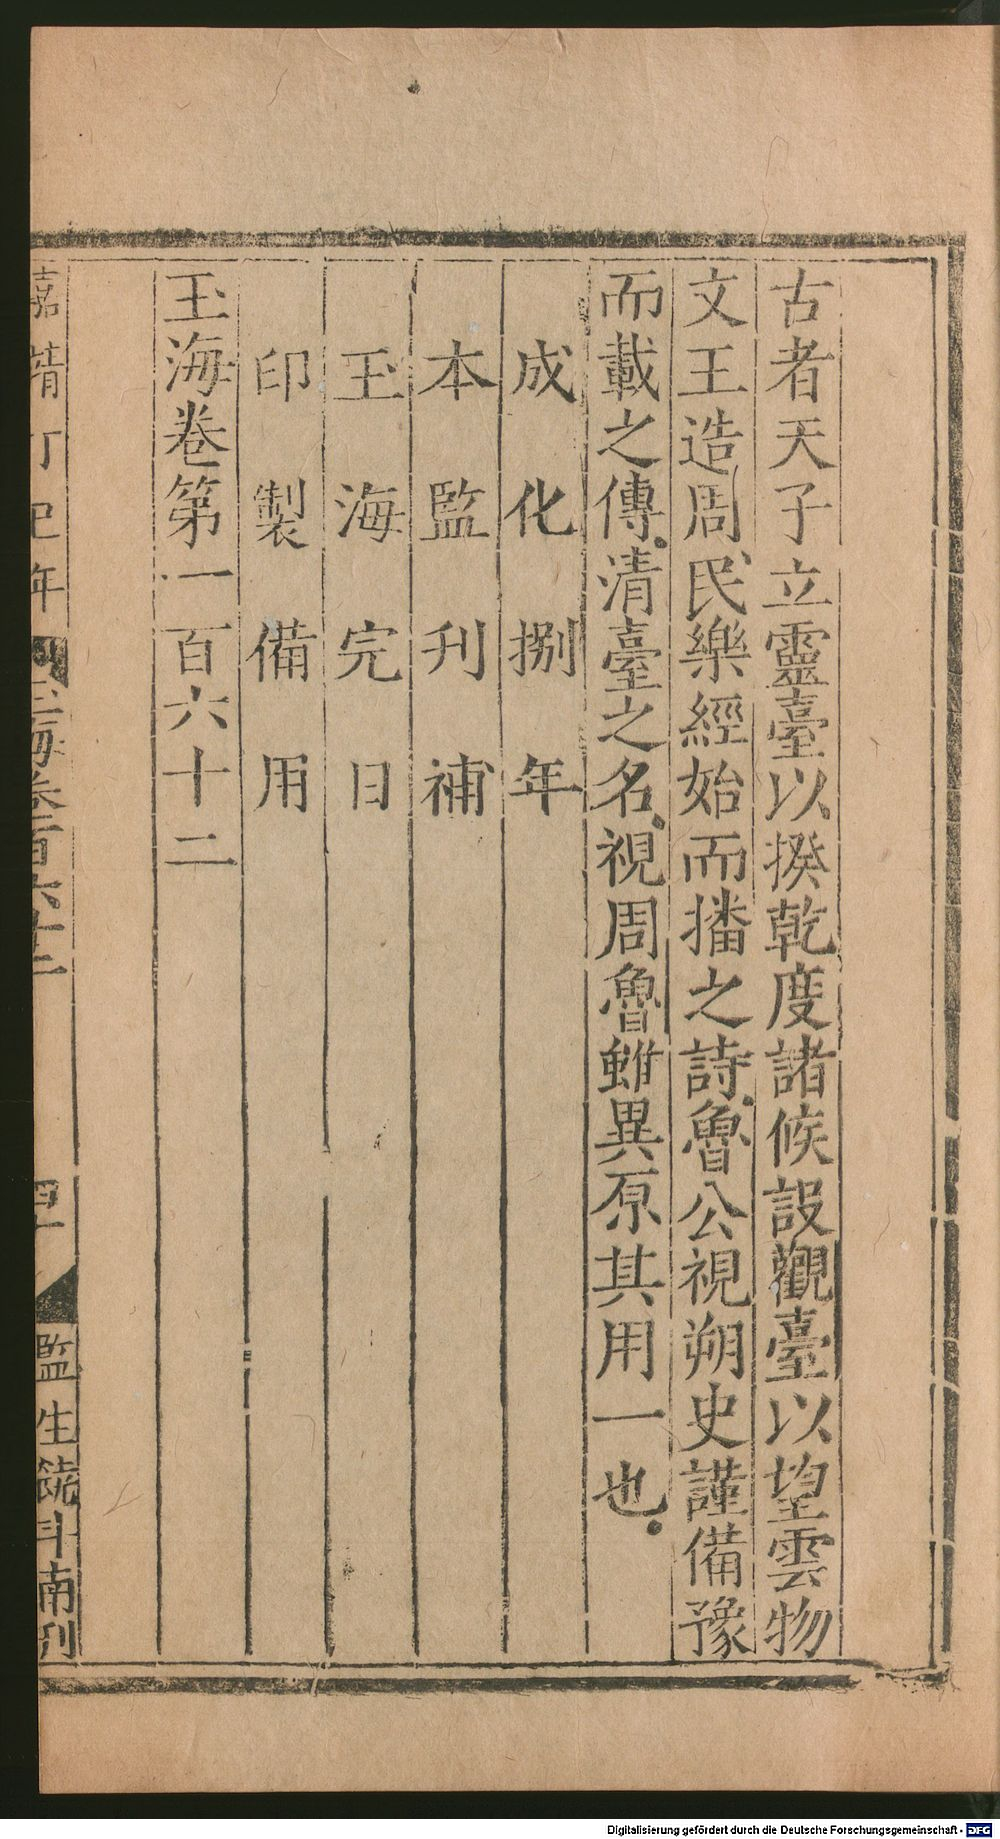 古者天子立靈臺以揆乾度諸侯設觀臺以望雲物
文王造周民樂經始而播之詩魯公視朔史謹備豫
而載之傳清臺之名視周魯雖異原其用一也
成化捌年
本監刊補
玉海完日
印製備用
玉海卷第一百六十二
嘉靖丁巳年
玉海卷一百六十二
四十
監生饒斗南刊
Digitalisierung gefördert durch die Deutsche Forschungsgemeinschaft - DFG